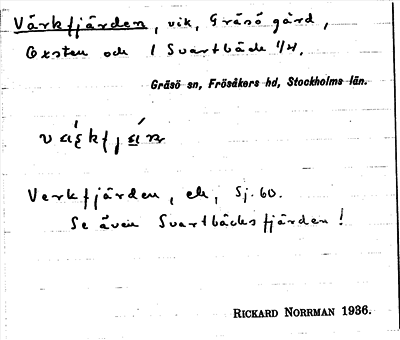 Värkfjärden, vik, Gräsö gård,
Oxsten och 1 Svartbäck 1/4.
Gräsö sn, Frösåkers hd, Stockholms län.
Verkfjärden, ek, Sj. 60.
Se även Svartbäcksfjärden!
RICKARD NORRMAN 1936.